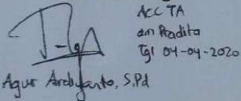 ACC TA
an Pradita
Tgl 04-04-2020
Agus Ardiyanto, S.Pd